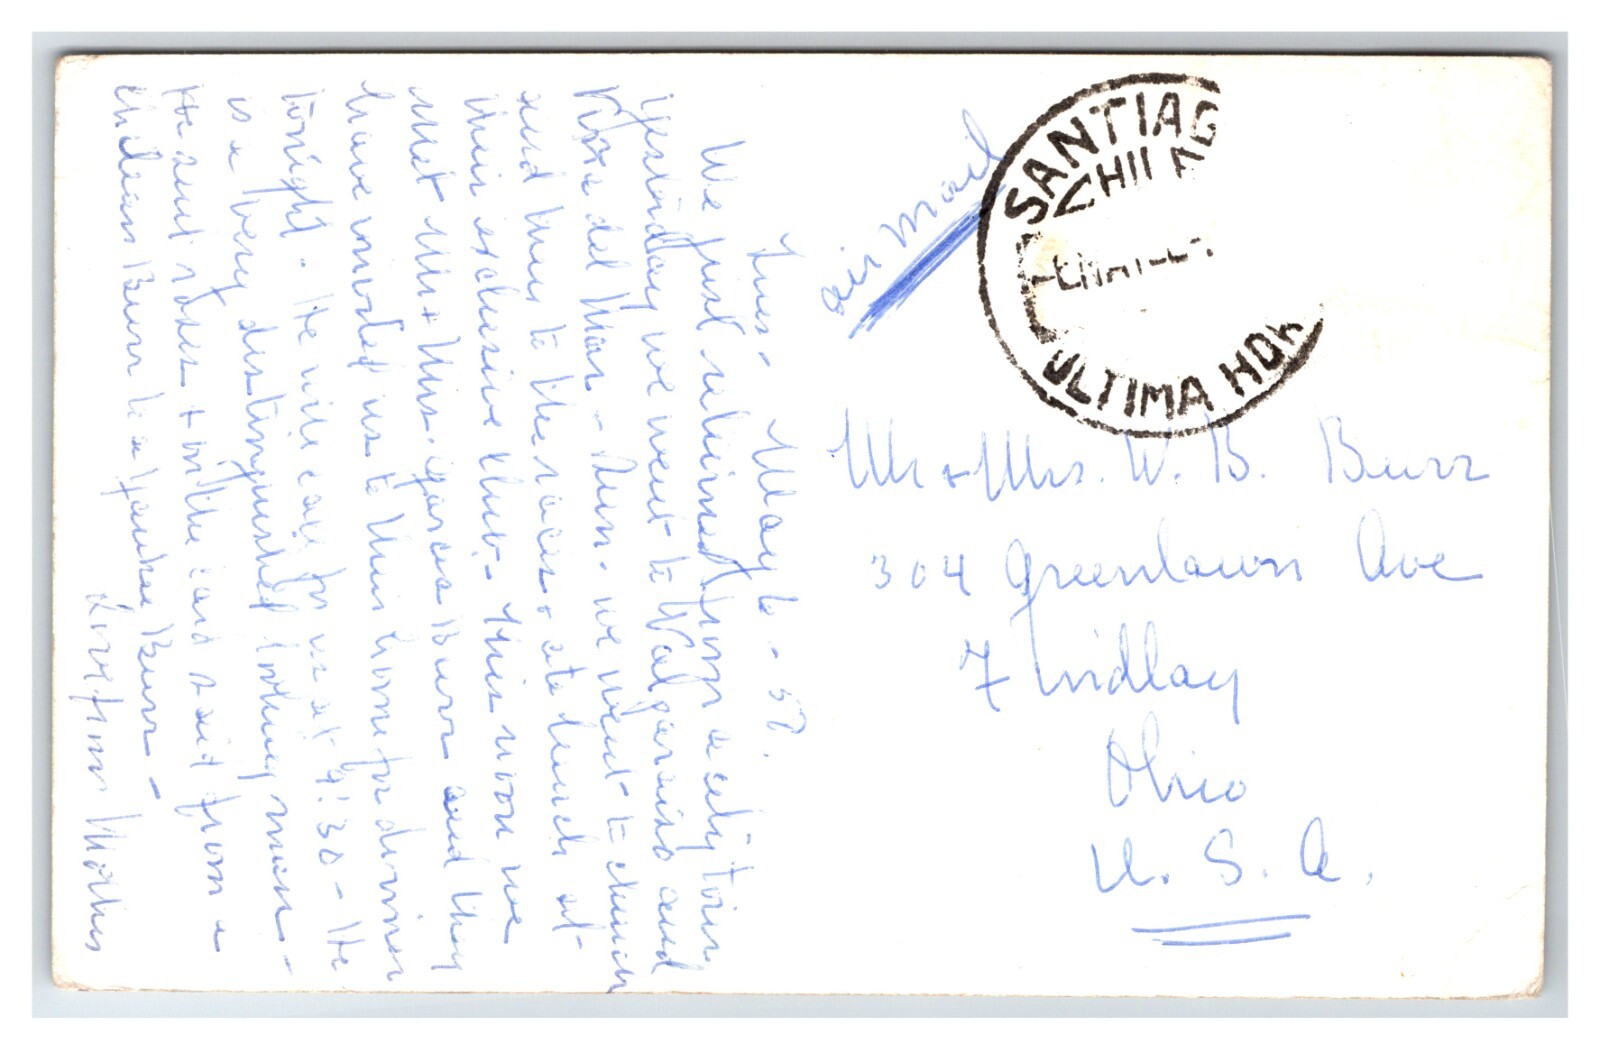 Tues. May 6 - 58.
We just returned from a city tour
yesterday we went to Valparaiso and
Vina del Mar - Sun. we went to church
and then to the races + ate lunch at
their exclusive club - This noon we
met Mr + Mrs. Garces Burr and they
have invited us to their home for dinner
tonight. He will call for us at 9:30 - He
is a very distinguished looking man -
He sent roses + on the card said from a
Chilean Burr to a Yankee Burr -
Love from Mother
Air Mail
SANTIAG
CHILE
ULTIMA HOR
Mr + Mrs. W. B. Burr
304 Greenlawn Ave
Findlay
Ohio
U. S. A.